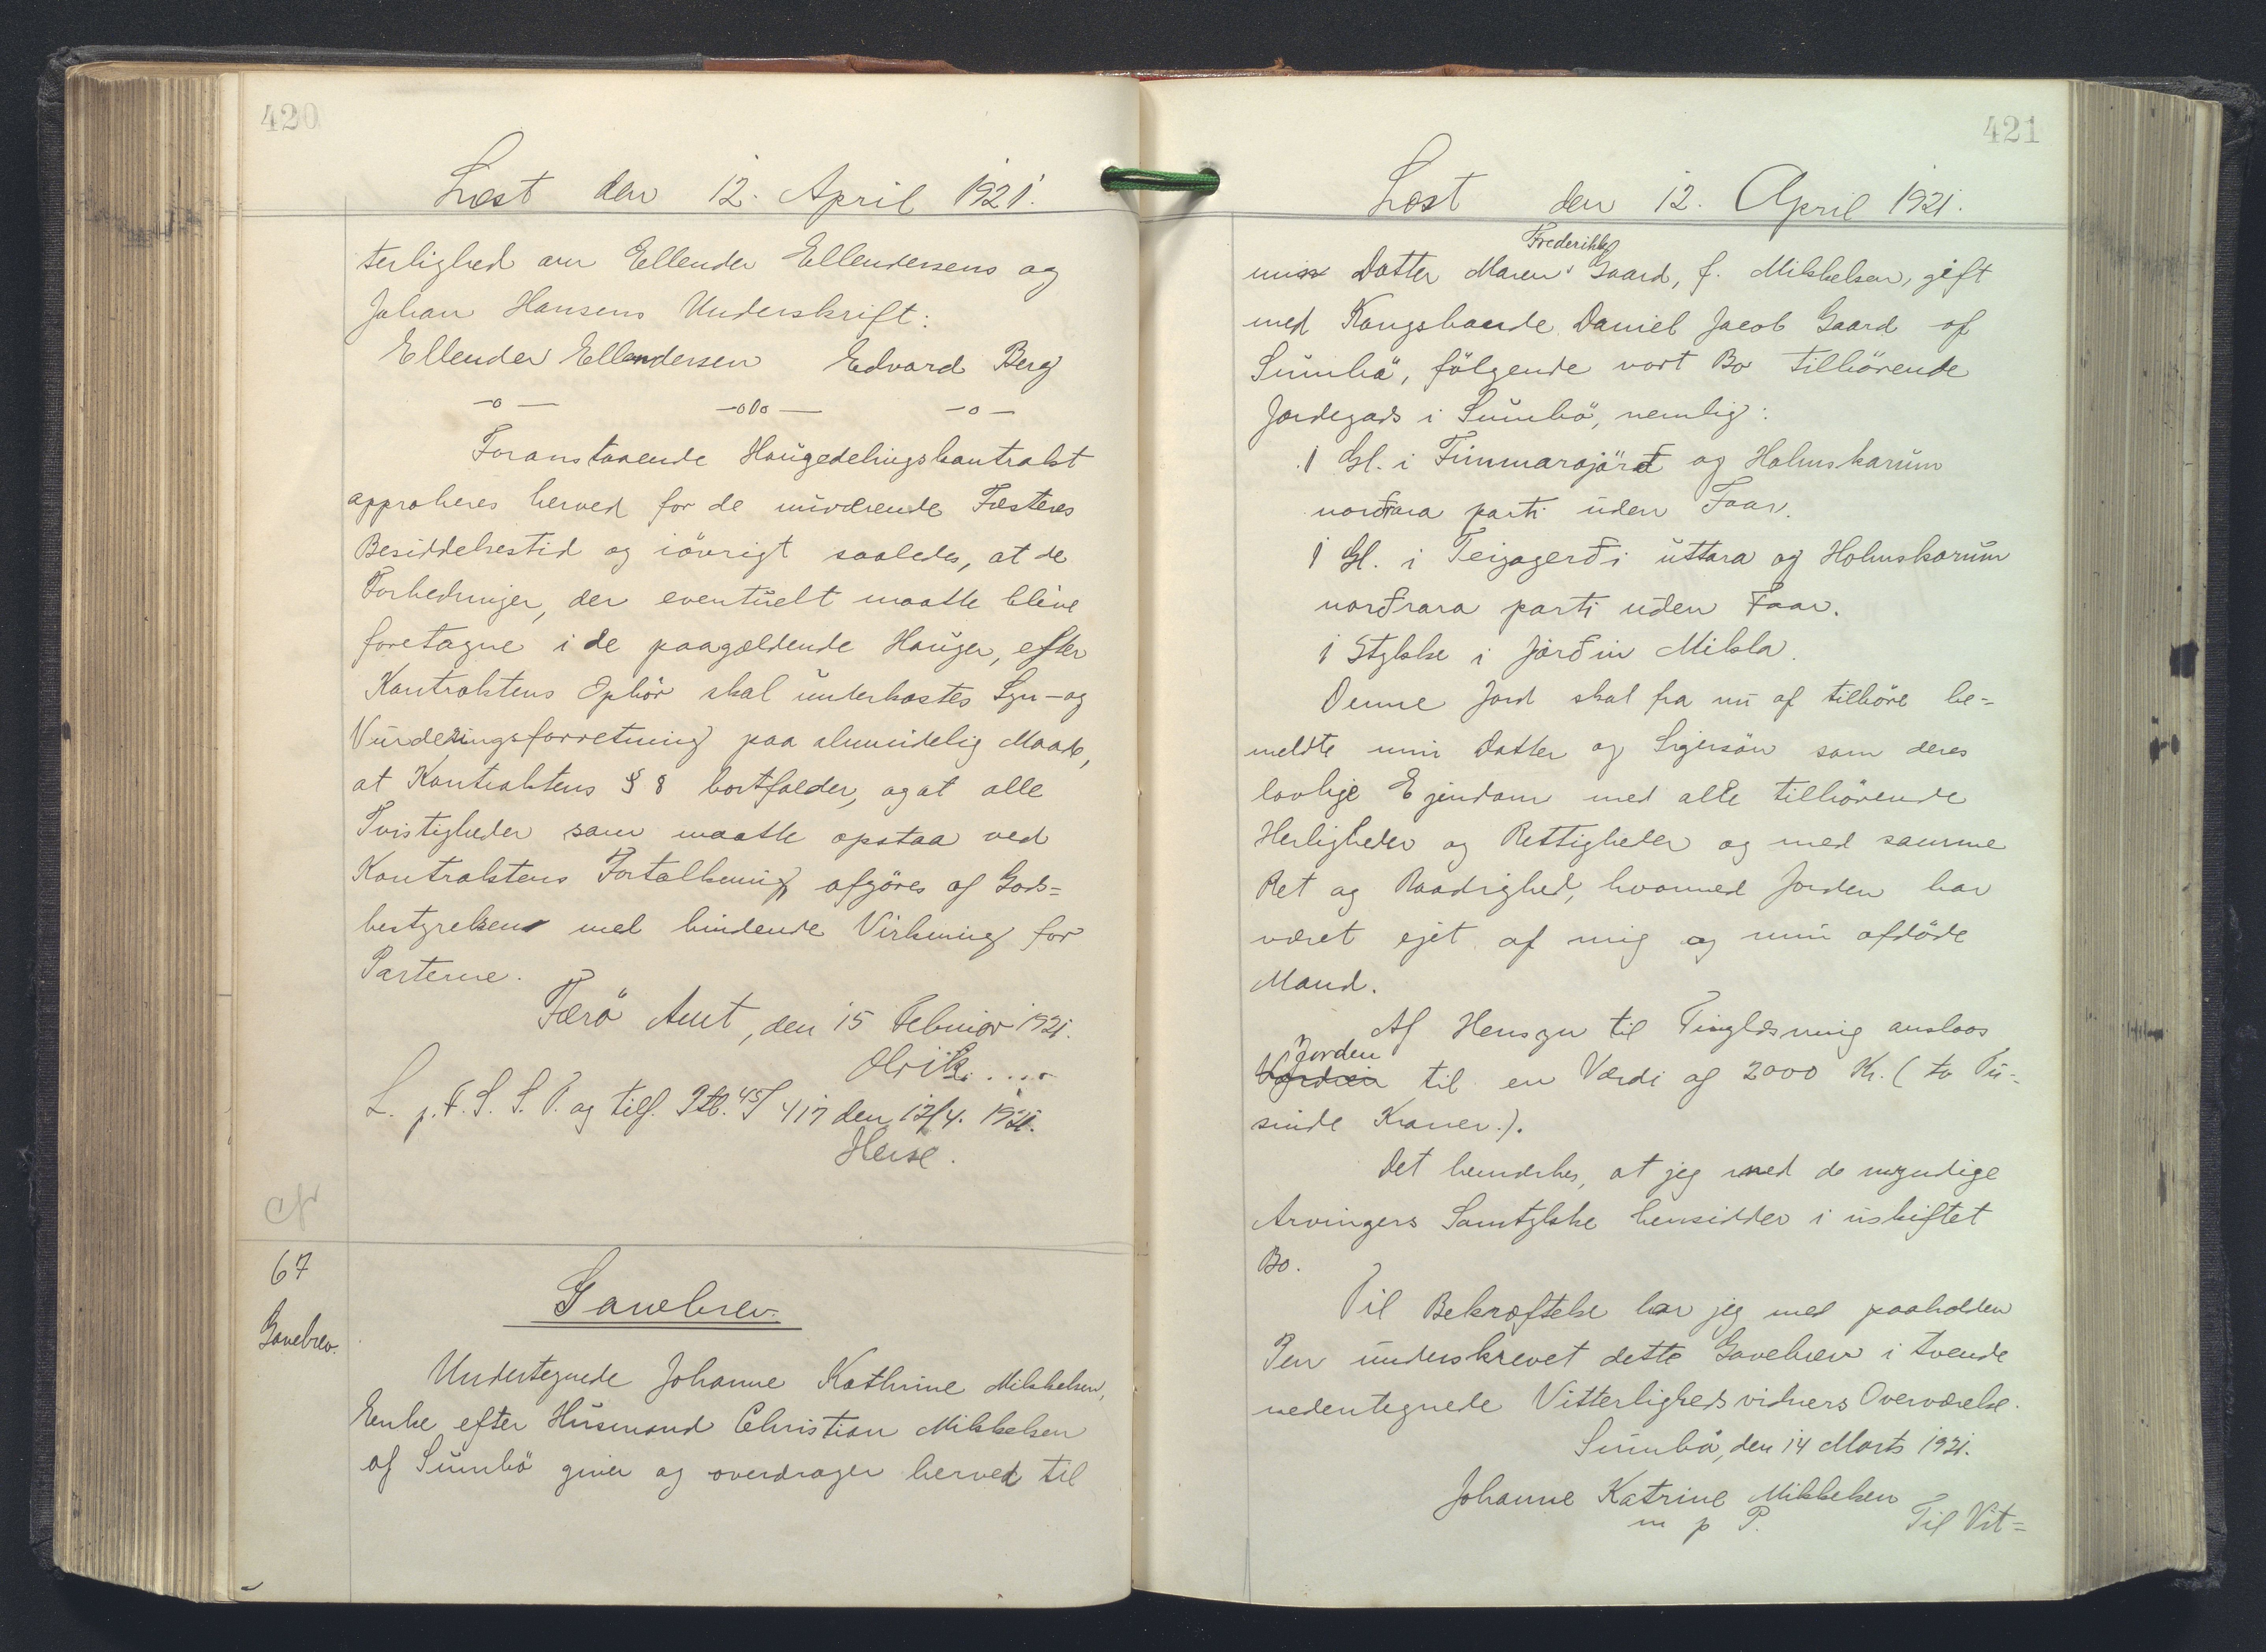 420
Læst den 12. April 1921.
terlighed om Ellender Ellendersens og
Johan Hansens Underskrift:
Ellender Ellendersen Edvard Berg
—o— —o0o— —o—
Foranstaaende Haugedelingskontrakt
approberes herved for de nuværende Fæsteres
Besiddelsestid og iövrigt saaledes, at de
Forbedringer, der eventuelt maatte blive
foretagne i de paagældende Hauger, efter
Kontraktens Ophör skal underkastes Syn- og
Vurderingsforretning paa almindelig Maade,
at Kontraktens § 8 bortfalder, og at alle
Tvistigheder som maatte opstaa ved
Kontraktens Fortolkning afgöres af Gods=
bestyrelsen med bindende Virkning for
Parterne.
Færö Amt, den 15 Februar 1921.
Olrik. ...
L. p. F. S. S. T. og tilf. Ptb. 45/417 den 12/4. 1921.
Heise.
cfr
67
Gavebrev.
Gavebrev.
Undertegnede Johanne Kathrine Mikkelsen,
Enke efter Husmand Christian Mikkelsen
af Sumbö giver og overdrager herved til
421
Læst den 12. April 1921.
Frederikke
min Datter Maren Gaard, f. Mikkelsen, gift
med Kongsbonde Daniel Jacob Gaard af
Sumbö, fölgende vort Bo tilhörende
Jordegods i Sumbö, nemlig:
1 Gl. i Timmarajörð og Holmskorum
norðara parti uden Faar.
1 Gl. i Teigagerði uttara og Holmskorum
norðrara parti uden Faar.
1 Stykke i Jörðin Mikla.
Denne Jord skal fra nu af tilhöre be=
meldte min Datter og Svigersön som deres
lovlige Ejendom med alle tilhörende
Herligheder og Rettigheder og med samme
Ret og Raadighed, hvormed Jorden har
været ejet af mig og min afdöde
Mand.
Af Hensyn til Tinglæsning anslaas
Jorden
til en Værdi af 2000 Kr. (to Tu=
sinde Kroner.).
Det bemærkes, at jeg med de myndige
Arvingers Samtykke hensidder i uskiftet
Bo.
Til Bekræftelse har jeg med paaholden
Pen underskrevet dette Gavebrev i tvende
nedentegnede Vitterlighedsvidners Overværelse.
Sumbö, den 14 Marts 1921.
Johanne Katrine Mikkelsen
m p P.
Til Vit=